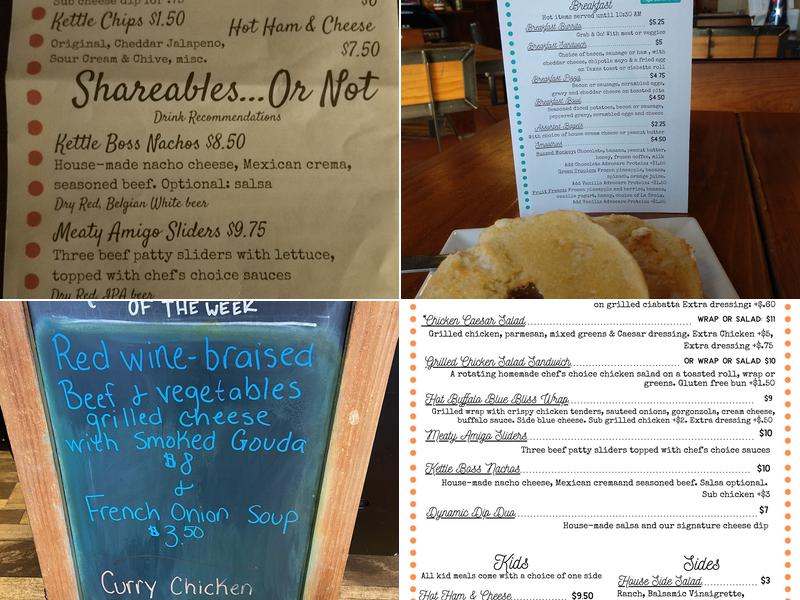 Sub cheese dip for .75
$6
Kettle Chips $1.50
Hot Ham & Cheese
$7.50
Original, Cheddar Jalapeno,
Sour Cream & Chive, misc.
Shareables...Or Not
Drink Recommendations
Kettle Boss Nachos $8.50
House-made nacho cheese, Mexican crema,
seasoned beef. Optional: salsa
Dry Red, Belgian White beer
Meaty Amigo Sliders $9.75
Three beef patty sliders with lettuce,
topped with chef's choice sauces
Dry Red, IPA beer
Breakfast
Hot items served until 10:30 AM
Breakfast Burrito $5.25
Grab & Go! With meat or veggies
Breakfast Sandwich $5
Choice of bacon, sausage or ham, with
cheddar cheese, chipotle mayo & a fried egg
on Texas toast or ciabatta roll
Breakfast Pizza $4.75
Bacon or sausage, scrambled eggs,
gravy and cheddar cheese on toasted pita
Breakfast Bowl $4.50
Seasoned diced potatoes, bacon or sausage,
peppered gravy, scrambled eggs and cheese
Assorted Bagels $2.25
With choice of house cream cheese or peanut butter
Smoothies $4.50
Buzzed Monkey: Chocolate, banana, peanut butter,
honey, frozen coffee, milk
Add Chocolate Advocare Protein: +$1.50
Green Frozion: Frozen pineapple, banana,
spinach, orange juice.
Add Vanilla Advocare Protein: +$1.50
Fruit Frenzy: Frozen pineapple and berries, banana,
vanilla yogurt, honey, choice of La Croix.
Add Vanilla Advocare Protein: +$1.50
OF THE WEEK
Red wine-braised
Beef & vegetables
grilled cheese
with Smoked Gouda
$8
&
French Onion Soup
$3.50
Curry Chicken
on grilled ciabatta Extra dressing: +$.60
*Chicken Caesar Salad WRAP OR SALAD $11
Grilled chicken, parmesan, mixed greens & Caesar dressing. Extra Chicken +$5,
Extra dressing +$.75
Grilled Chicken Salad Sandwich OR WRAP OR SALAD $10
A rotating homemade chef's choice chicken salad on a toasted roll, wrap or
greens. Gluten free bun +$1.50
Hot Buffalo Blue Bliss Wrap $9
Grilled wrap with crispy chicken tenders, sauteed onions, gorgonzola, cream cheese,
buffalo sauce. Side blue cheese. Sub grilled chicken +$2. Extra dressing +$.50
Meaty Amigo Sliders $10
Three beef patty sliders topped with chef's choice sauces
Kettle Boss Nachos $10
House-made nacho cheese, Mexican cremaand seasoned beef. Salsa optional.
Sub chicken +$3
Dynamic Dip Duo $7
House-made salsa and our signature cheese dip
Kids
All kid meals come with a choice of one side
Hot Ham & Cheese $9.50
Sides
House Side Salad $3
Ranch, Balsamic Vinaigrette,